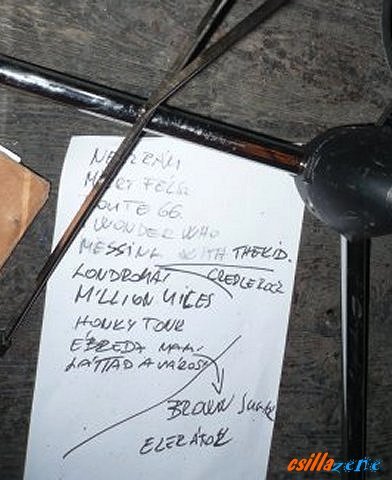 ROUTE 66.
WONDER WHO
MESSING WITH THE KID.
LONDROMAT
CREDLEROCK
MILLION MILES
HONKY TONK
ÉBREDA
LÁTTAD A VÁROST
BROWN SUGAR
ELERÁTOK
csillazene